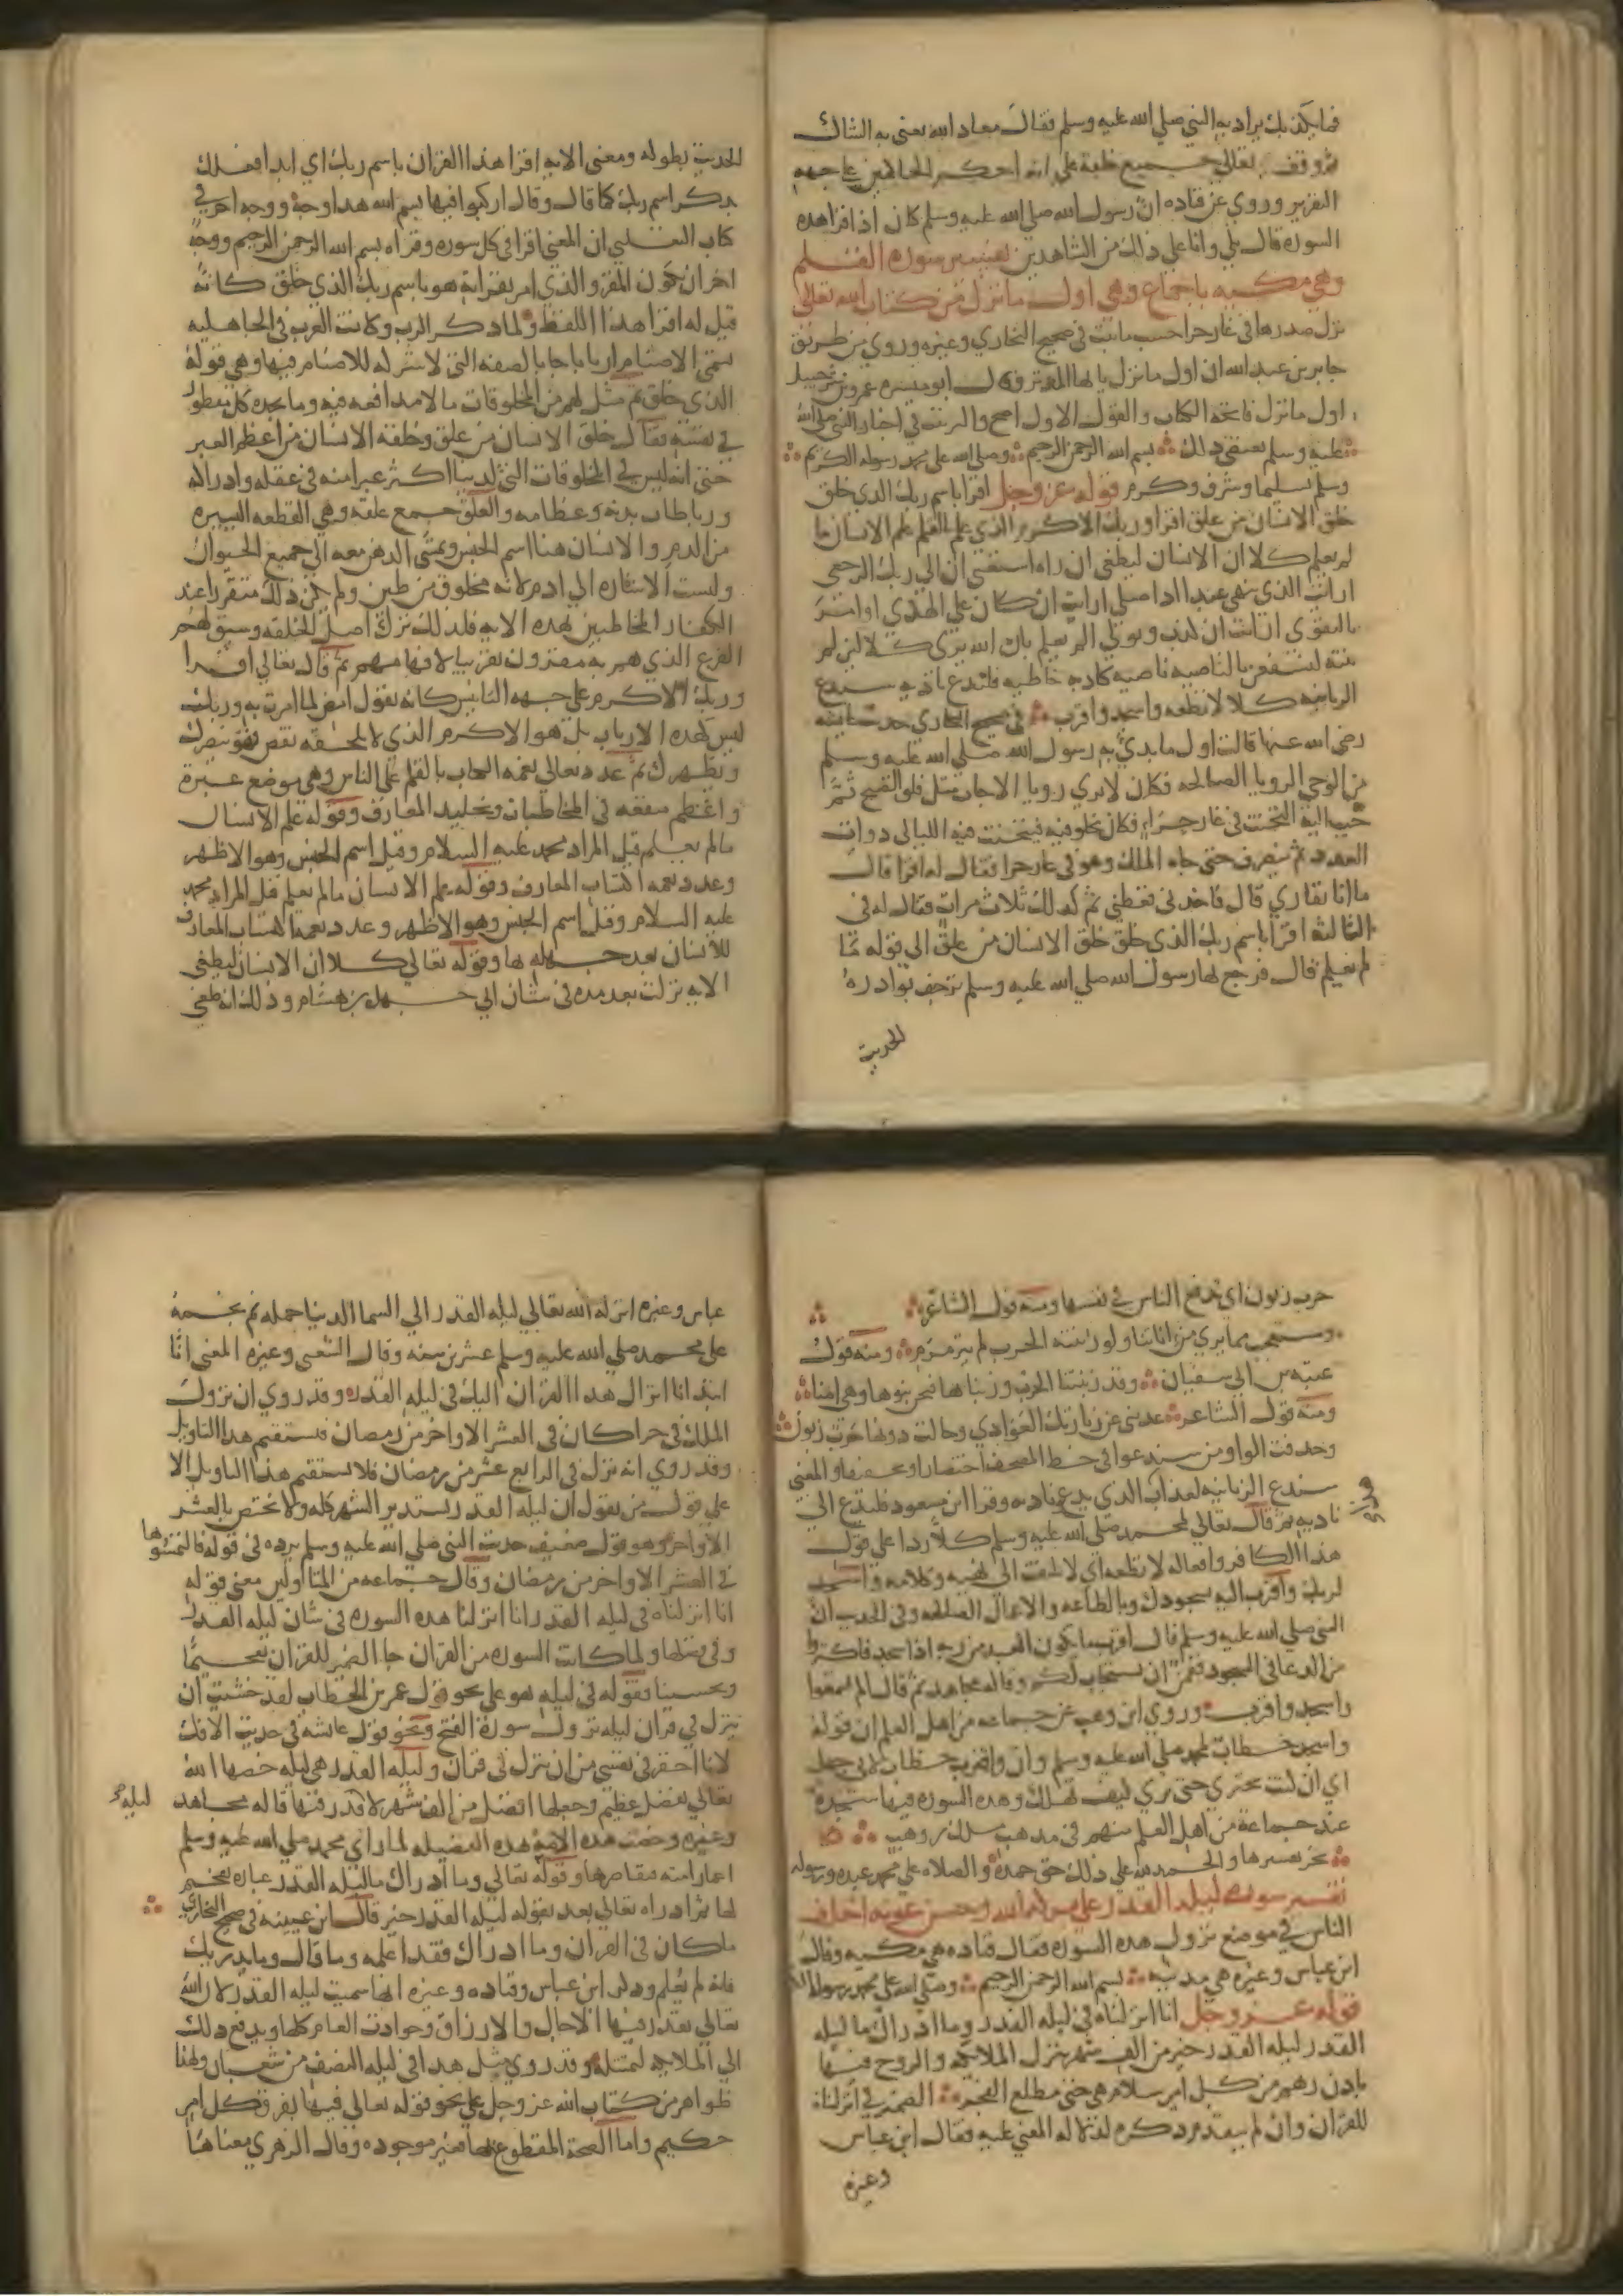 فما يكذبك يراد به النبي صلي الله عليه وسلم فقال معاد الله يعني به الشاك
ثم وقف تعالي جميع خلقه علي انه احكم الحاكمين علي جهه
التقرير وروي عن قتاده ان رسول الله صلي الله عليه وسلم كان اذا قرا هده
السوره قال بلي وانا علي ذلك من الشاهدين تفسير سوره القلم
وهي مكيه باجماع وهي اول ما نزل من كتاب الله تعالي
نزل صدرها في غار حرا حسب ما ثبت في صحيح البخاري وغيره وروي من طريق
جابر بن عبد الله ان اول ما نزل يا ايها المدثر وقال ابو ميسره عمرو بن شرحبيل
اول ما نزل فاتحه الكتاب والقول الاول اصح والترتيب في اخبار النبي صلي الله
عليه وسلم يقتضي ذلك بسم الله الرحمن الرحيم وصلي الله علي محمد رسوله الكريم
وسلم تسليما وشرف وكرم قوله عز وجل اقرا باسم ربك الدي خلق
خلق الانسان من علق اقرا وربك الاكرم الذي علم بالقلم علم الانسان ما
لم يعلم كلا ان الانسان ليطغي ان راه استغني ان الي ربك الرجعي
ارايت الذي ينهي عبدا ادا صلي ارايت ان كان علي الهدي او امر
بالتقوي ارايت ان كذب وتولي الم يعلم بان الله يري كلا لين لم
ينته لنسفعن بالناصيه ناصيه كادبه خاطيه فليدع ناديه سندع
الزبانيه كلا لا تطعه واسجد واقترب في صحيح البخاري حديث عايشه
رضي الله عنها قالت اول ما بدئ به رسول الله صلي الله عليه وسلم
من الوحي الرويا الصالحه فكان لا يري رويا الا جات مثل فلق الصبح ثم
حبب اليه التحنث في غار حراء فكان يخلو فيه فيتحنث فيه الليالي دوات
العدد ثم ينصرف حتي جاه الملك وهو في غار حرا فقال له اقرا قال
ما انا بقاري قال فاخدني فغطني ثم كدلك ثلاث مرات فقال له في
الثالثه اقرا باسم ربك الذي خلق خلق الانسان من علق الي قوله ما
لم يعلم قال فرجع بها رسول الله صلي الله عليه وسلم ترجف بوادره
الحديث
الحديث بطوله ومعني الايه اقرا هذا القران باسم ربك اي ابدا فعلك
بدكر اسم ربك كما قال وقال اركبوا فيها بسم الله هدا وجه ووجه اخر في
كتاب الثعلبي ان المعني اقرا في كل سوره وقراه بسم الله الرحمن الرحيم ووجه
اخر ان يكون المقرو الذي امر بقراته هو باسم ربك الذي خلق كانه
قيل له اقرا هذا اللفظ ولما دكر الرب وكانت العرب في الجاهليه
تسمي الاصنام اربابا جا بالصفه التي لا شركه للاصنام فيها وهي قوله
الذي خلق ثم مثل لهم من المخلوقات ما لا مدافعه فيه وما يجده كل مفطور
في نفسه فقال خلق الانسان من علق وخلقه الانسان من اعظم العبر
حتي انه ليس في المخلوقات التي لدينا اكثر عبرا منه في عقله وادراكه
ورباطات بدنه وعظامه والعلق جمع علقه وهي القطعه اليسيره
من الدم والانسان هنا اسم الجنس ويمشي الدهن معه الي جميع الحيوان
وليست الاشاره الي ادم لانه مخلوق من طين ولم يكن ذلك متقررا عند
الكفار المخاطبين بهده الايه فلدلك ترك اصل الخلقه وسيق لهم
الفرع الذي هم به مقرون تقريبا لافهامهم ثم قال تعالي اقرا
وربك الاكرم علي جهه التانيس كانه يقول امض لما امرت به وربك
ليس كهده الارباب بل هو الاكرم الذي لا يلحقه نقص فهو ينصرك
ويظهرك ثم عدد تعالي نعمه الكتاب بالقلم علي الناس وهي موضع عبره
واعظم منفعه في المخاطبات وتخليد المعارف وقوله علم الانسان
ما لم يعلم قيل المراد محمد عليه السلام وقيل اسم الجنس وهو الاظهر
وعدد نعمه اكتساب المعارف وقوله علم الانسان ما لم يعلم قيل المراد محمد
عليه السلام وقيل اسم الجنس وهو الاظهر وعدد نعمه اكتساب المعارف
للانسان بعد جهله بها وقوله تعالي كلا ان الانسان ليطغي
الايه نزلت بعد مده في شان ابي جهل بن هشام ودلك انه طغي
حرب زبون اي تدفع الناس في نفسها ومنه قول الشاعر
ومستعجب مما يري من اناتنا ولو زبنته الحرب لم يترمرم ومنه قول
عتبه بن ابي سفيان وقد زبنتنا الحرب وزبناها فنحن بنوها وهي امنا
ومنه قول الشاعر عدتني عن زيارتك العوادي وحالت دونها حرب زبون
وحدفت الواو من سندعوا في خط المصحف اختصارا وتخفيفا والمعني
سندع الزبانيه لعذاب الذي يدع ناديه وقرا ابن مسعود فليدع الي
ناديه ثم قال تعالي لمحمد صلي الله عليه وسلم كلا ردا علي قول
هذا الكافر وافعاله لا تطعه اي لا تلتفت الي نهيه وكلامه واسجد
لربك واقترب اليه بسجودك وبالطاعه والاعمال الصالحه وفي الحديث ان
النبي صلي الله عليه وسلم قال اقرب ما يكون العبد من ربه اذا سجد فاكثروا
من الدعا في السجود فقمن ان يستجاب لكم وقاله مجاهد ثم قال الم تسمعوا
واسجد واقترب وروي ابن وهب عن جماعه من اهل العلم ان قوله
واسجد خطاب لمحمد صلي الله عليه وسلم وان واقترب خطاب لابي جهل
اي ان كنت تجتري حتي تري كيف تهلك وهده السوره فيها سجده
عند جماعه من اهل العلم منهم في مدهب مالك بن وهب
نجز تفسيرها والحمد لله علي ذلك حق حمده والصلاه علي محمد عبده ورسوله
تفسير سوره ليله القدر علي بركه الله وحسن عونه اختلف
الناس في موضع نزول هده السوره فقال قتاده هي مكيه وقال
ابن عباس وغيره هي مدنيه بسم الله الرحمن الرحيم وصلي الله علي محمد رسوله
قوله عز وجل انا انزلناه في ليله القدر وما ادراك ما ليله
القدر ليله القدر خير من الف شهر تنزل الملايكه والروح فيها
بادن ربهم من كل امر سلام هي حتي مطلع الفجر الضمير في انزلناه
للقران وان لم يتقدم دكره لدلاله المعني عليه فقال ابن عباس
وغيره
عباس وغيره انزله الله تعالي ليله القدر الي السما الدنيا جمله ثم نجمه
علي محمد صلي الله عليه وسلم عشرين سنه وقال الشعبي وغيره المعني انا
ابتدانا انزال هدا القران اليك في ليله القدر وقد روي ان نزول
الملك في حرا كان في العشر الاواخر من رمضان فيستقيم هدا التاويل
وقد روي انه نزل في الرابع عشر من رمضان فلا يستقيم هذا التاويل الا
علي قول من يقول ان ليله القدر تستدير الشهر كله ولا تختص بالعشر
الاواخر وهو قول ضعيف حديث النبي صلي الله عليه وسلم يرده في قوله فالتمسوها
في العشر الاواخر من رمضان وقال جماعه من المتاولين معني قوله
انا انزلناه في ليله القدر انا انزلنا هده السوره في شان ليله القدر
وفي فضلها ولما كانت السوره من القران جا الضمير للقران تفخيما
وتحسينا فقوله في ليله هو علي نحو قول عمر بن الخطاب لقد خشيت ان
ينزل في قران ليله نزول سورة الفتح ونحو قول عايشه في حديث الافك
لانا احقر في نفسي من ان ينزل في قران وليله القدر هي ليله خصها الله
تعالي بفضل عظيم وجعلها افضل من الف شهر لا قدر فيها قاله مجاهد
ليله
وغيره وخصت هده الامه بهده الفضيله لما راي محمد صلي الله عليه وسلم
اعمار امته فتقاصرها وقوله تعالي وما ادراك ما ليله القدر عباره تفخيم
لها ثم ادراه تعالي بعد بقوله ليله القدر خير قال ابن عيينه في صحيح البخاري
ما كان في القران وما ادراك فقد اعلمه وما قال وما يدريك
فانه لم يعلم ودكر ابن عباس وقتاده وغيره انها سميت ليله القدر لان الله
تعالي يقدر فيها الاجال والارزاق وحوادث العام كلها ويدفع دلك
الي الملايكه لتمتثله وقد روي مثل هدا في ليله النصف من شعبان ولهدا
ظواهر من كتاب الله عز وجل علي نحو قوله تعالي فيها يفرق كل امر
حكيم واما الصحة المقطوع بها فغير موجوده وقال الزهري معناها